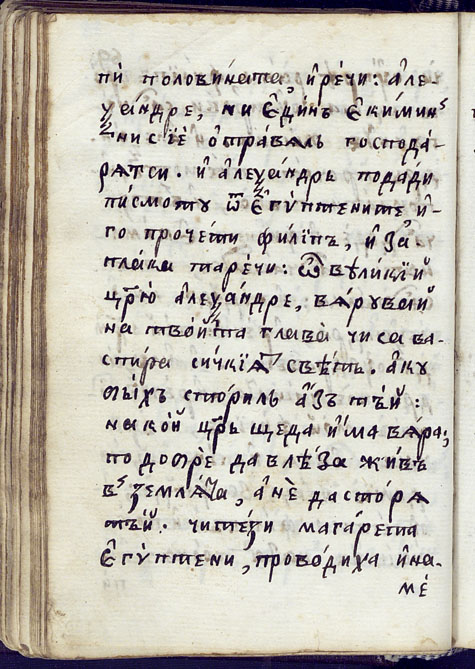 пѝ полови́ната, и҆ре́чи: а҆ле-
ѯа́ндре, ни є҆ди́нъ є҆ки́минъ
ни сїѐ ѻ҆тра́вѧль господа́-
рѧтси. и҆ а҆леѯа́ндрь подади
писмото ѿ є҆гѵ́птените и҆-
го прочети фили́пъ, и҆ за́-
плака таре́чи: ѽ вѣли́кїй
цр҃ю а҆леѯа́ндре, вѧ́рувай
на твоѝта глава̀ чи са ва-
спи́ра си́чкїѧ свѣтъ. а҆ку
бы́хъ сто́риль а҆́зъ тъ́й:
на ко́й цр҃ь щеда и҆́ма вѧ́ра;
по добрѐ да влѣ́за жи́въ
въ землѧ̀та, а҆ нѐ да сто́рѧ
тъ́й. чи те́зи мага́рета
є҆гѵ́птени, прово́диха и҆ на-
мѐ